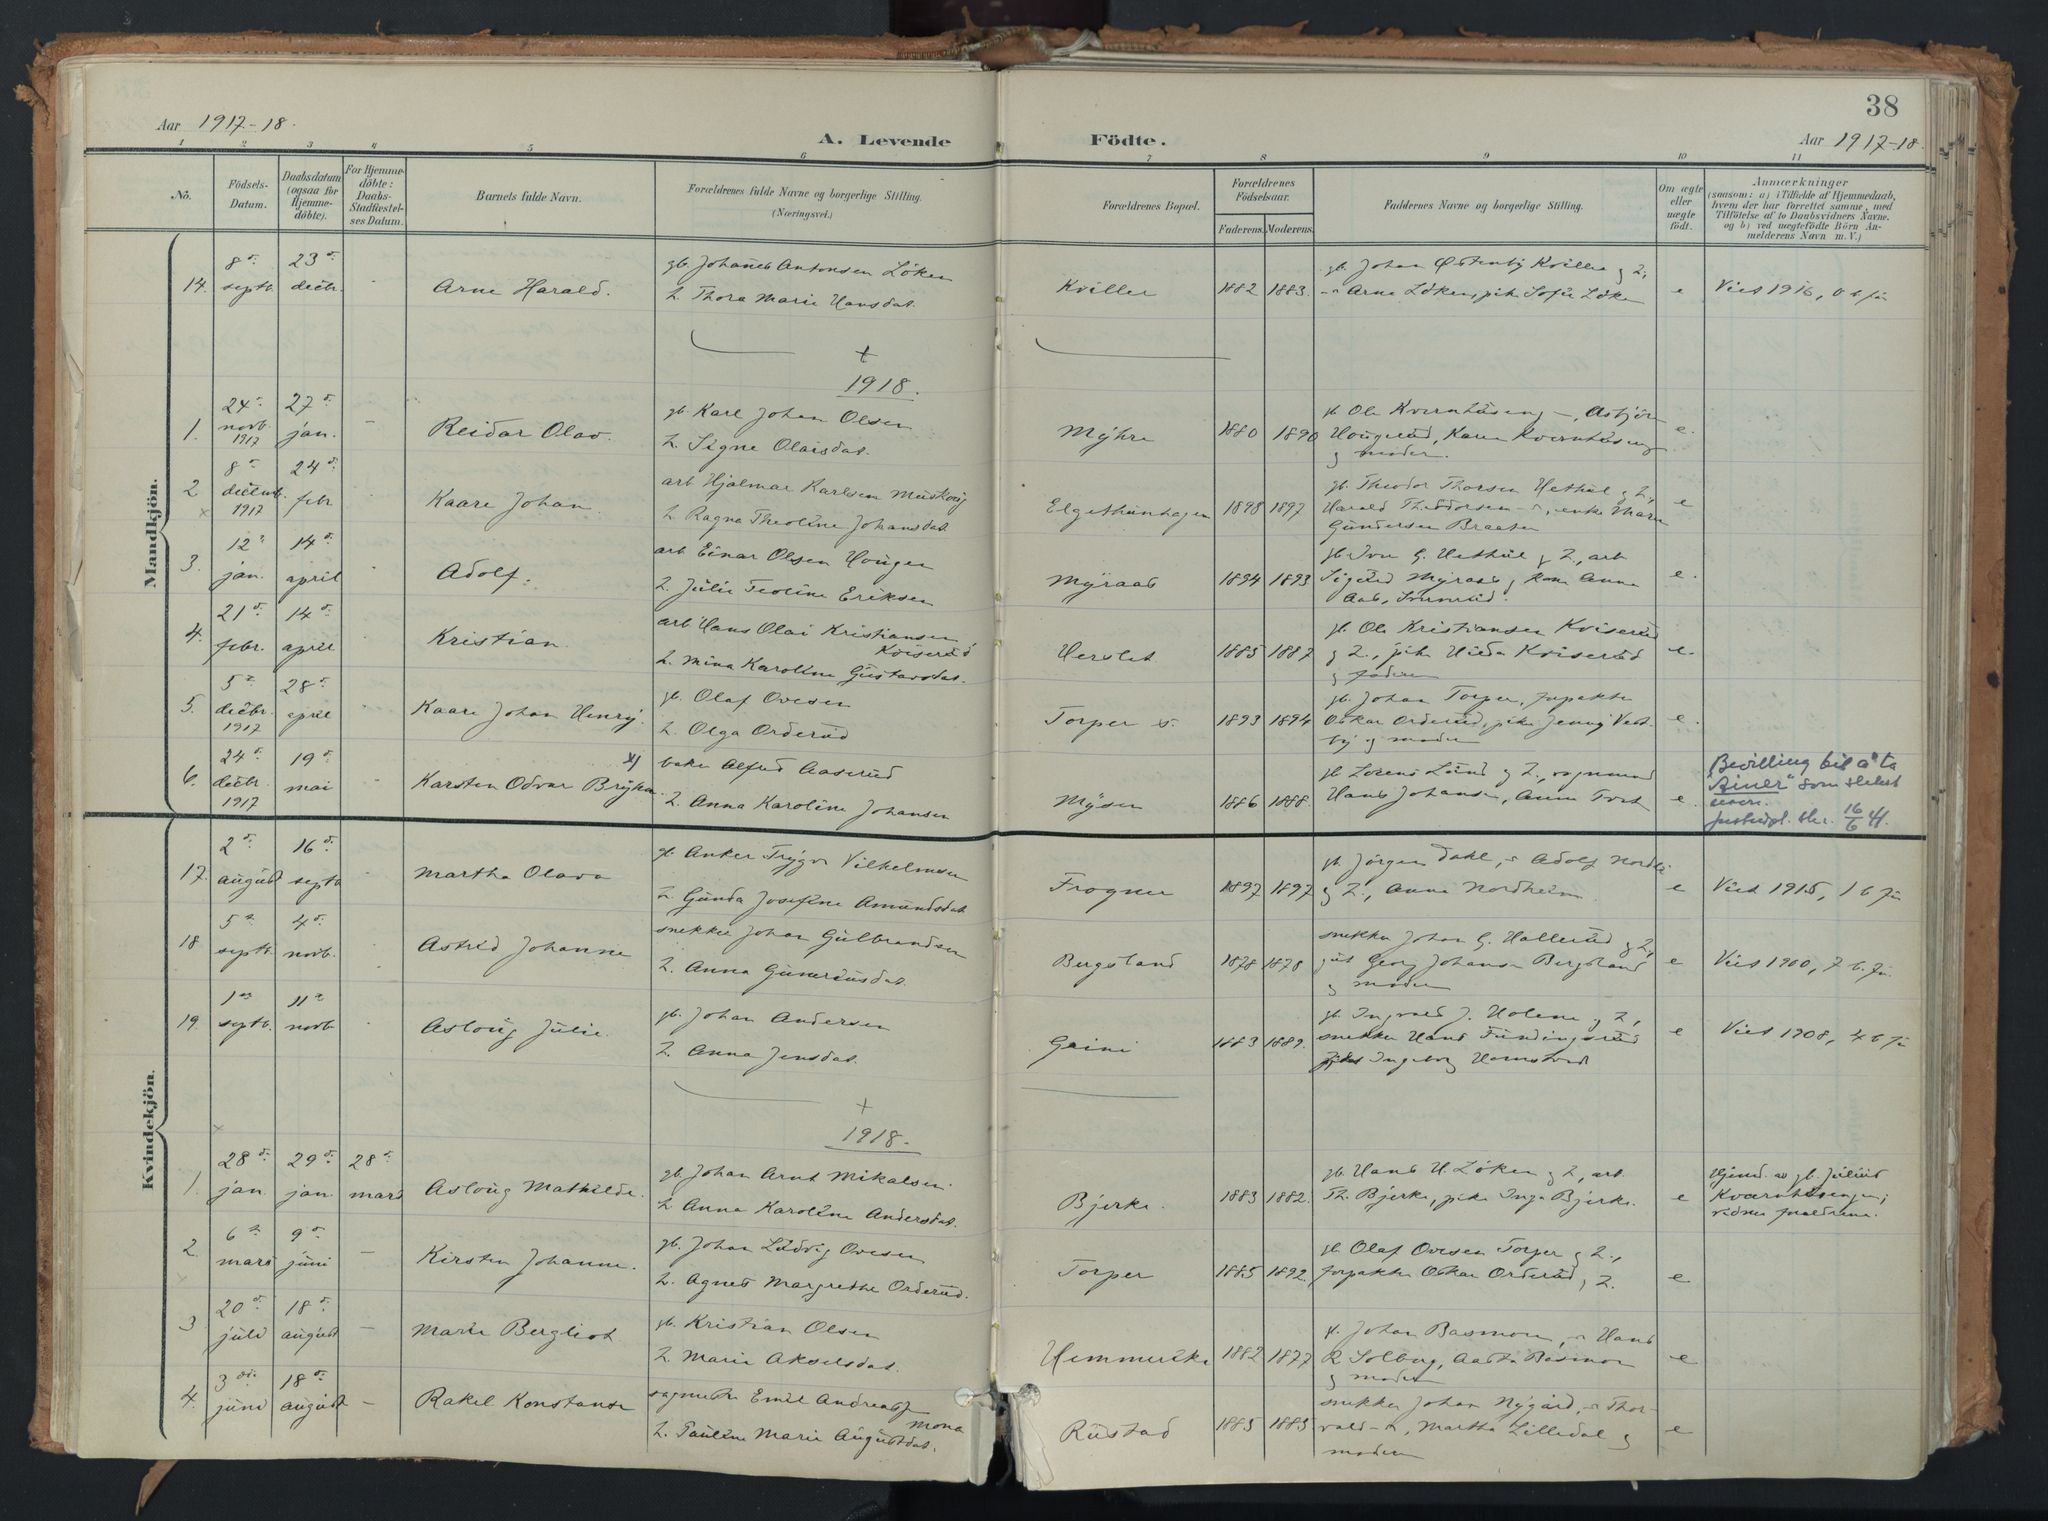 38
Aar 1917-18.
A. Levende
Födte.
Aar 1917-18.
1 2 3 4 5 6 7 8 9 10 11
No.
Födsels-
Datum.
Daabsdatum
(ogsaa for
Hjemme-
döbte).
For Hjemme-
döbte:
Daabs-
Stadfæstel-
ses Datum.
Barnets fulde Navn.
Forældrenes fulde Navne og borgerlige Stilling.
(Næringsvei.)
Forældrenes Bopæl.
Forældrenes
Födselsaar.
Faderens. Moderens.
Faddernes Navne og borgerlige Stilling.
Om ægte
eller
uægte
födt.
Anmærkninger
(saasom: a) i Tilfælde af Hjemmedaab,
hvem der har forrettet samme, med
Tilföielse af to Daabsvidners Navne.
og b) ved uægtefödte Börn An-
melderens Navn m. V.)
Mandkjön.
14. 8de septb. 23de decbr. Arne Harald.
gb. Johanes Antonsen Löken
h. Thora Marie Hansdat.
Kviller 1882 1883.
gb. Johan Östenby Kviller og h.,
Arne Löken, pike Sofie Löken
e Viet 1916, 0 b. fu
1918.
1. 24de novb. 1917 27de jan. - Reidar Olav.
gb. Karl Johan Olsen
h. Signe Olaisdat.
Myhre 1880 1890
gb. Ole Kvernhuseng -, Asbjörn
Hougerud, Karen Kvernhuseng
og moder.
e.
2 8de decemb. 1917 24de febr Kaare Johan
arb Hjalmar Karlsen
h. Ragna Theoline Johansdat
Elgethunhagen 1898 1897
gb. Theodor Thorsen Hethul og h.,
Harald Theodorsen, enke Maren
Gundersen Braaten
e
3. 12 jan. 14de april Adolf.
arb Einar Olsen Hougen
h. Julie Teoline Eriksen
Myraas 1894 1893
gb. Iver G. Hethul og h., arb
Sigurd Myraas og kone Anna
e.
4. 21de febr. 14de april Kristian.
arb Hans Olai Kristiansen
Kviserud
h. Mina Karoline Gustavsdat.
Herslet 1885 1887
gb. Ole Kristiansen Kviserud
og h., pike Hilda Kviserud
og faderen
e.
5. 5te decbr. 1917 28de april Kaare Johan Henry.
gb. Olaf Ovesen
h. Olga Orderud
Torper s. 1893 1894
gb. Johan Torper, forpakter
Oskar Orderud, pike Jenny Vest-
by og moder
e.
6. 24de decbr. 1917 19de mai Karsten Odvar Bryhn x)
baker Alfred Aaserud
h. Anna Karoline Johansen
Mysen 1886 1888.
gb. Lorens Lund og h., vognmand
Hans Johansen, Anne Tveit
e.
Bevilling til å ta
"Biner" som slekts
navn.
16/6 41.
Kvindekjön.
17. 2de august 16de septb Martha Olava
gb. Anker Trygve Vilhelmsen
h. Gunda Josefine Amundsdat.
Frogner 1897 1897
gb. Jörgen Dahl, Adolf Nordli
og h., Anna Nordheim
e Viet 1915, 1 b. fu
18 5te septb. 4de novb. Astrid Johanne
snekker Johan Gulbrandsen
h. Anna Guneriusdat.
Bergsland 1878 1878
snekker Johan G. Hallerud og h.,
gut Georg Johansen Bergsland
og moder
e Viet 1900, 7 b. fu.
19. 1ste septb. 11te novb. Asloug Julie.
gb. Johan Andersen
h. Anna Jensdat.
Greini 1883 1889.
gb. Ingvald J. Holene og h.,
snekker Hans Fundingsrud
Ingeborg Homstvedt
e Viet 1908, 4 b. fu
1918.
1. 28de jan. 29de jan. 28de mars Asloug Mathilde.
gb. Johan Arnt Mikalsen
h Anna Karoline Andersdat.
Bjerke. 1883 1882.
gb. Hans H. Löken og h., arb.
Th. Bjerke, pike Inga Bjerke.
e
Hjemd. av gb. Julius
Kvernhusengen;
vidner forældrene.
2. 6te mars 9de juni - Kirsten Johanne.
gb. Johan Ludvig Ovesen
h. Agnes Margrethe Orderud.
Torper 1885 1892.
gb. Olaf Ovesen Torper og h.,
forpakter Oskar Orderud og h.
e
3 20de juli 18de august - Marie Bergliot
gb. Kristian Olsen
h. Marie Akselsdat.
Hemmerike 1882 1877
gb. Johan Basmoen, Hans
R. Solberg, Aasta Basmoen
og moder
e
4. 3die juni 18de august - Rakel Konstanse
sagmester Emil Andreas J
Mona
h. Pauline Marie Augustdat.
Rustad 1885 1885
snekker Johan Nygård, Thor-
vald, Martha Lilledal og
moderen
e